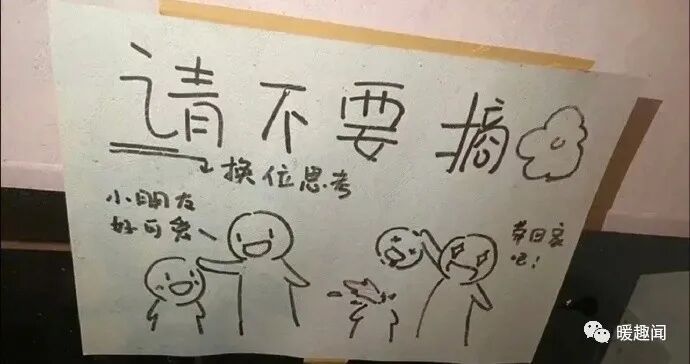 请不要摘
换位思考
小朋友
好可爱
带回家
吧!
暖趣闻